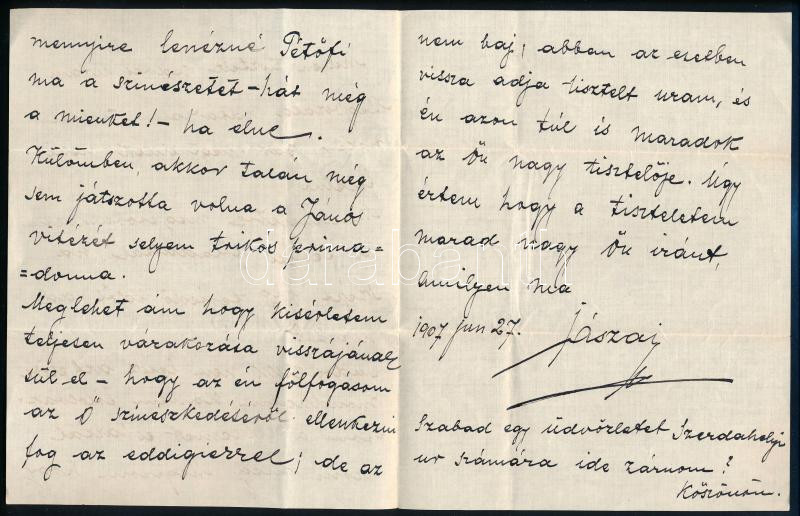 mennyire lenézné Petőfi
ma a szinészetet – hát még
a mienket! – ha élne.
Külömben, akkor talán még
sem játszotta volna a János
vitézét selyem trikós prima=
=donna.
Meglehet ám hogy kisérletem
teljesen várakozása visszájának
sül el – hogy az én fölfogásom
az Ő szinészkedéséről ellenkezni
fog az eddigierrel; de az
nem baj; abban az esetben
vissza adja tisztelt uram, és
én azon túl is maradok
az Ön nagy tisztelője. Úgy
értem hogy a tiszteletem
marad nagy Ön iránt,
Amilyen ma
1907 jun 27. Jászai
Szabad egy üdvözletet Szerdahelyi
ur számára ide zárnom?
Köszönöm.
darabanth